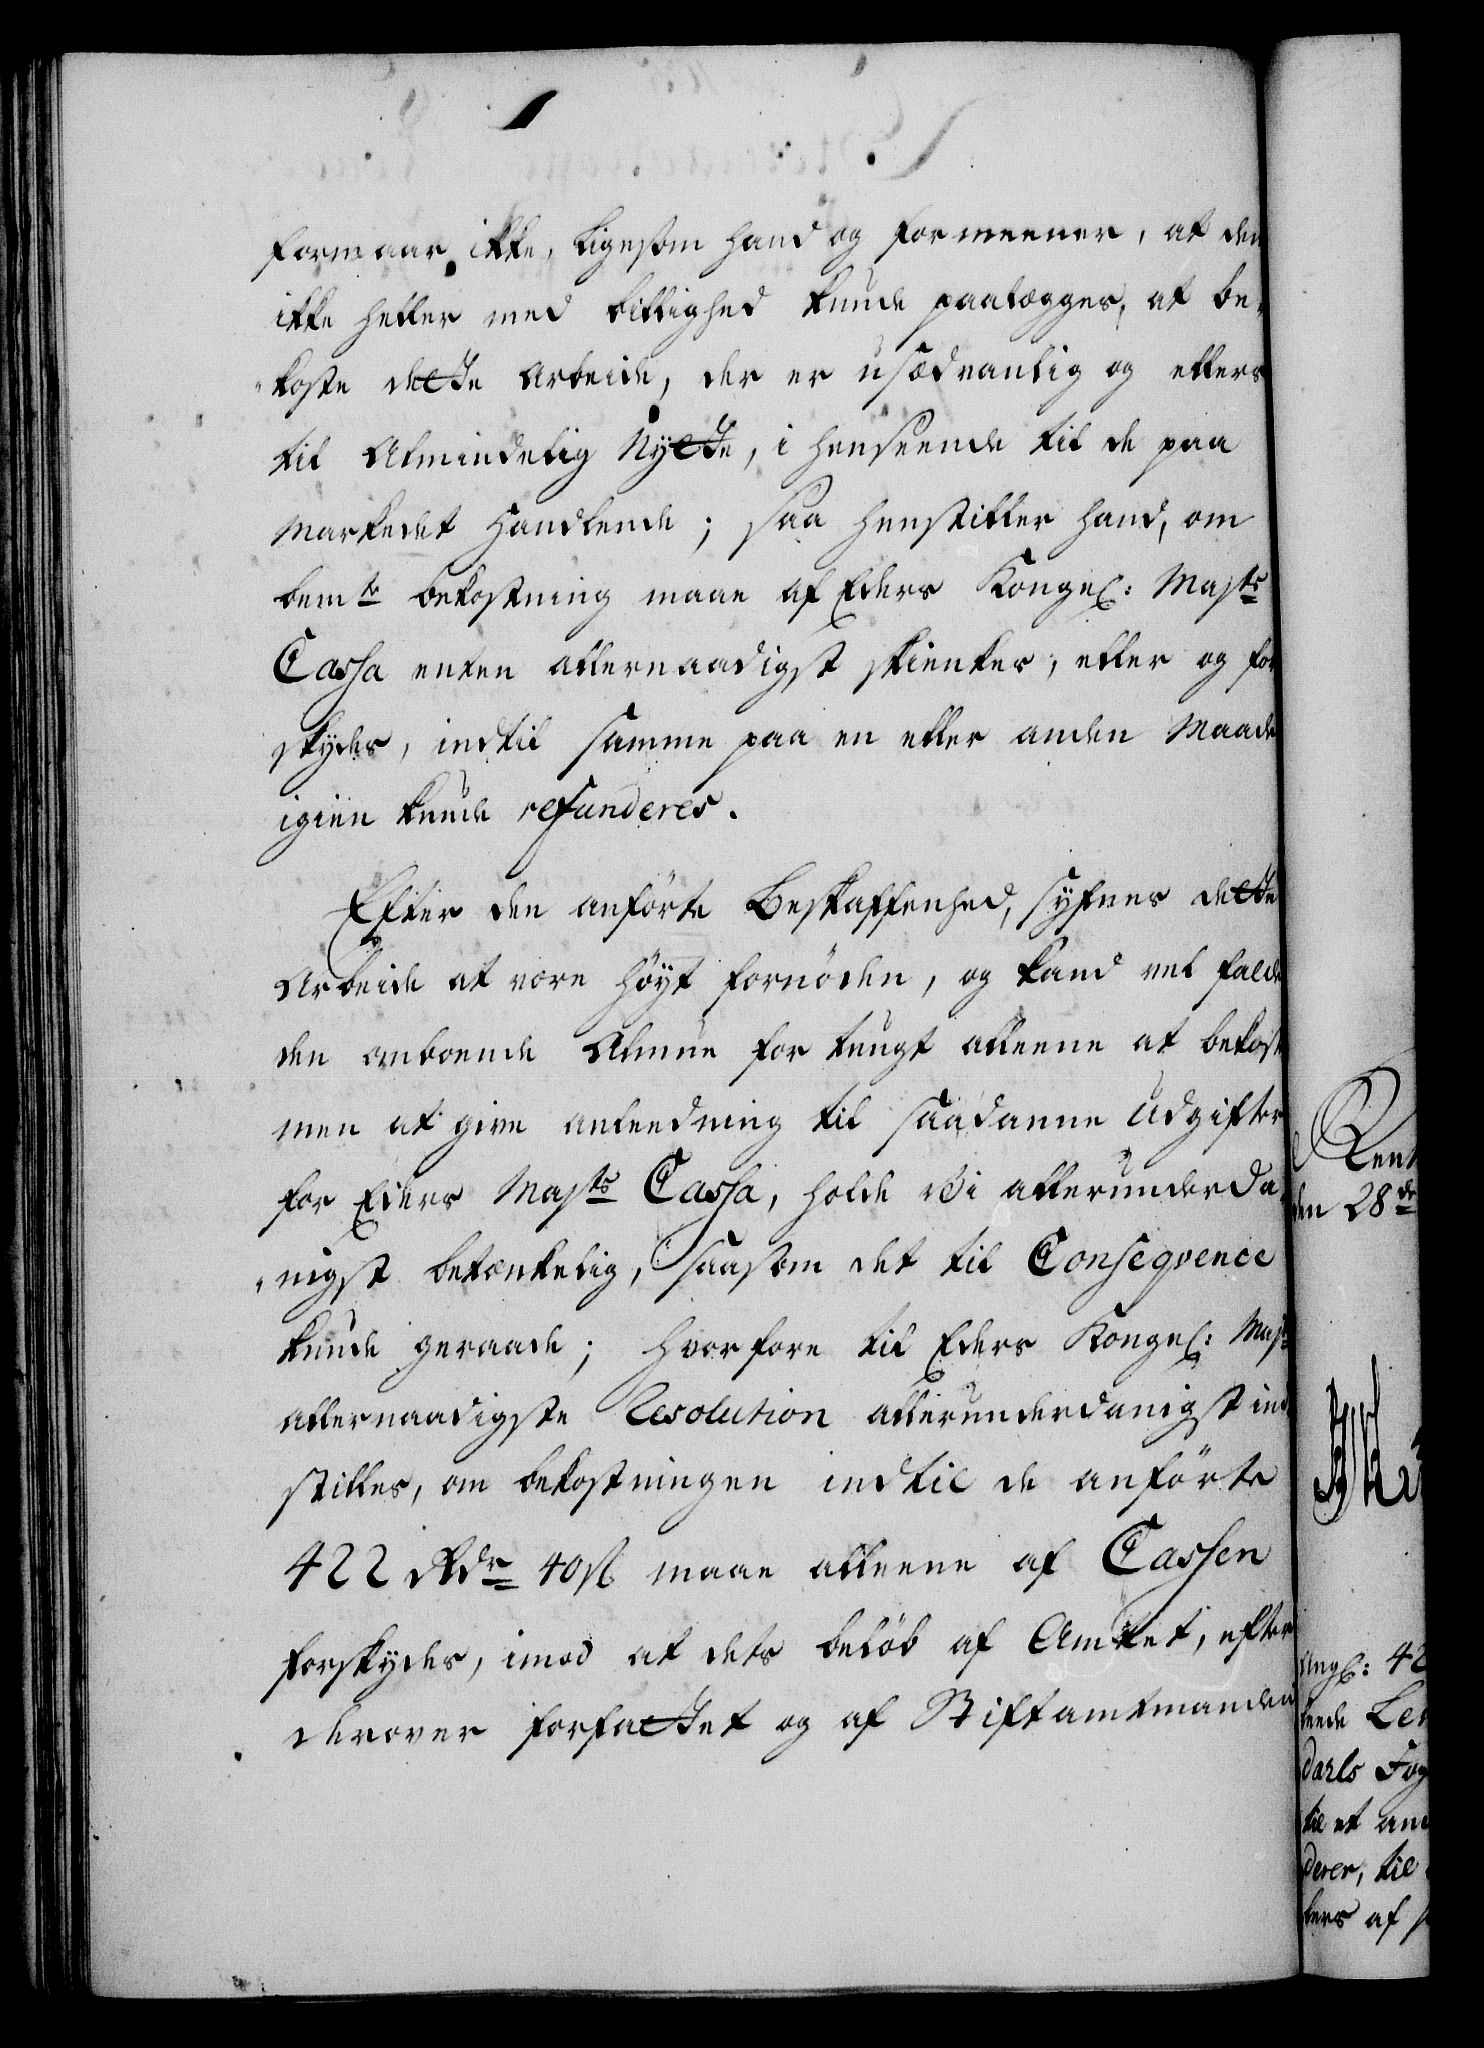 formaar ikke, ligesom hand og formeener, at den
ikke heller med billighed kunde paalægges, at be-
koste dette Arbeide, der er usædvanlig og ellers
til Almindelig Nytte, i henseende til de paa
Markedet Handlende; saa henstiller hand, om
bemte bekostning maae af Eders Kongel: Majts
Cassa enten allernaadigst skienkes, eller og for
skydes, indtil samme paa en eller anden Maade
igien kunde refunderes.
Efter den anførte Beskaffenhed, synes dette
Arbeide at være høyt fornøden, og kand vel falde
den omboende Almue for tungt alleene at bekoste
men at give anleedning til saadanne Udgifter
for Eders Majts Cassa, holde Vi allerunderda-
nigst betænkelig, saasom det til Conseqvence
kunde geraade; hvorfore til Eders Kongel: Majts
allernaadigste Resolution allerunderdanigst ind
stilles, om bekostningen indtil de anførte
422 Rdr 40 s maae alleene af Cassen
forskydes, imod at dets beløb af Amtet, efter
derover forfattet og af Stiftamtmanden
Rent
den 28de
Angl: 42
dahls Fog
til et an
derer, til
kers af